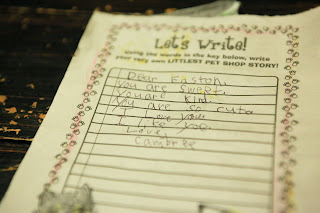 Let's Write!
Using the words in the key below, write
your very own LITTLEST PET SHOP STORY!
Dear Easton,
You are sweet.
You are kind.
You are so cute
I Love you.
I Like you.
Love,
Cambree